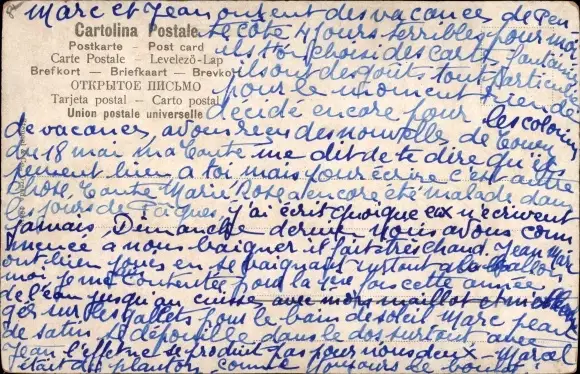 Marc et Jean auront des vacances de Pen
Cartolina Postale
te côte 4 jours terribles pour moi
Postkarte - Post card
ils ont choisi des cartes fantaisie
Carte Postale - Levelező-Lap
ils ont des goûts tout particu
Brefkort - Briefkaart - Brevkort
pour le moment rien de
ОТКРЫТОЕ ПИСЬМО
Tarjeta postal - Carto postal
décidé encore pour les colonies
Union postale universelle
de vacances, avons reçu des nouvelles de
du 18 mai ma tante me dit de te dire qu'ils
pensent bien à toi mais pour écrire c'est autre
chose, Tante Marie Rosa encore été malade dans
les jours de Pâques, j'ai écrit quoique eux n'écrivent
jamais. Dimanche dernier nous avons com
mencé a nous baigner il fait très chaud. Jean Marc
ont bien joués en se baignant surtout a la ballon
moi je me contentée pour la 1ère fois cette année
de l'eau jusqu'au cuisse avec mon maillot et m'
ger sur les galets pour le bain de soleil Marc peau
de satin, se dépouille dans le dos surtout, avec
Jean l'effet ne se produit pas pour nous deux - Marcel
était du planton comme toujours de boulot